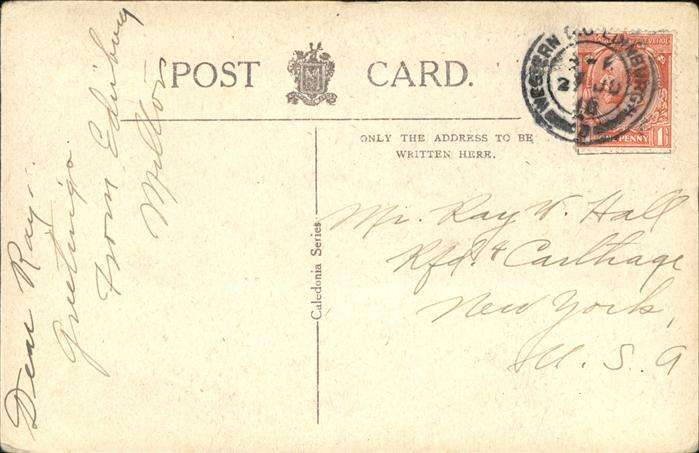 POST CARD.
ONLY THE ADDRESS TO BE
WRITTEN HERE.
Dear Ray:
Greetings
from Edinburg
Milton
Caledonia Series
Mr. Ray W. Hall
Rfd. 4 Carthage
New York,
U. S. A
WESTERN EDINBURGH
27 JU
PENNY 1